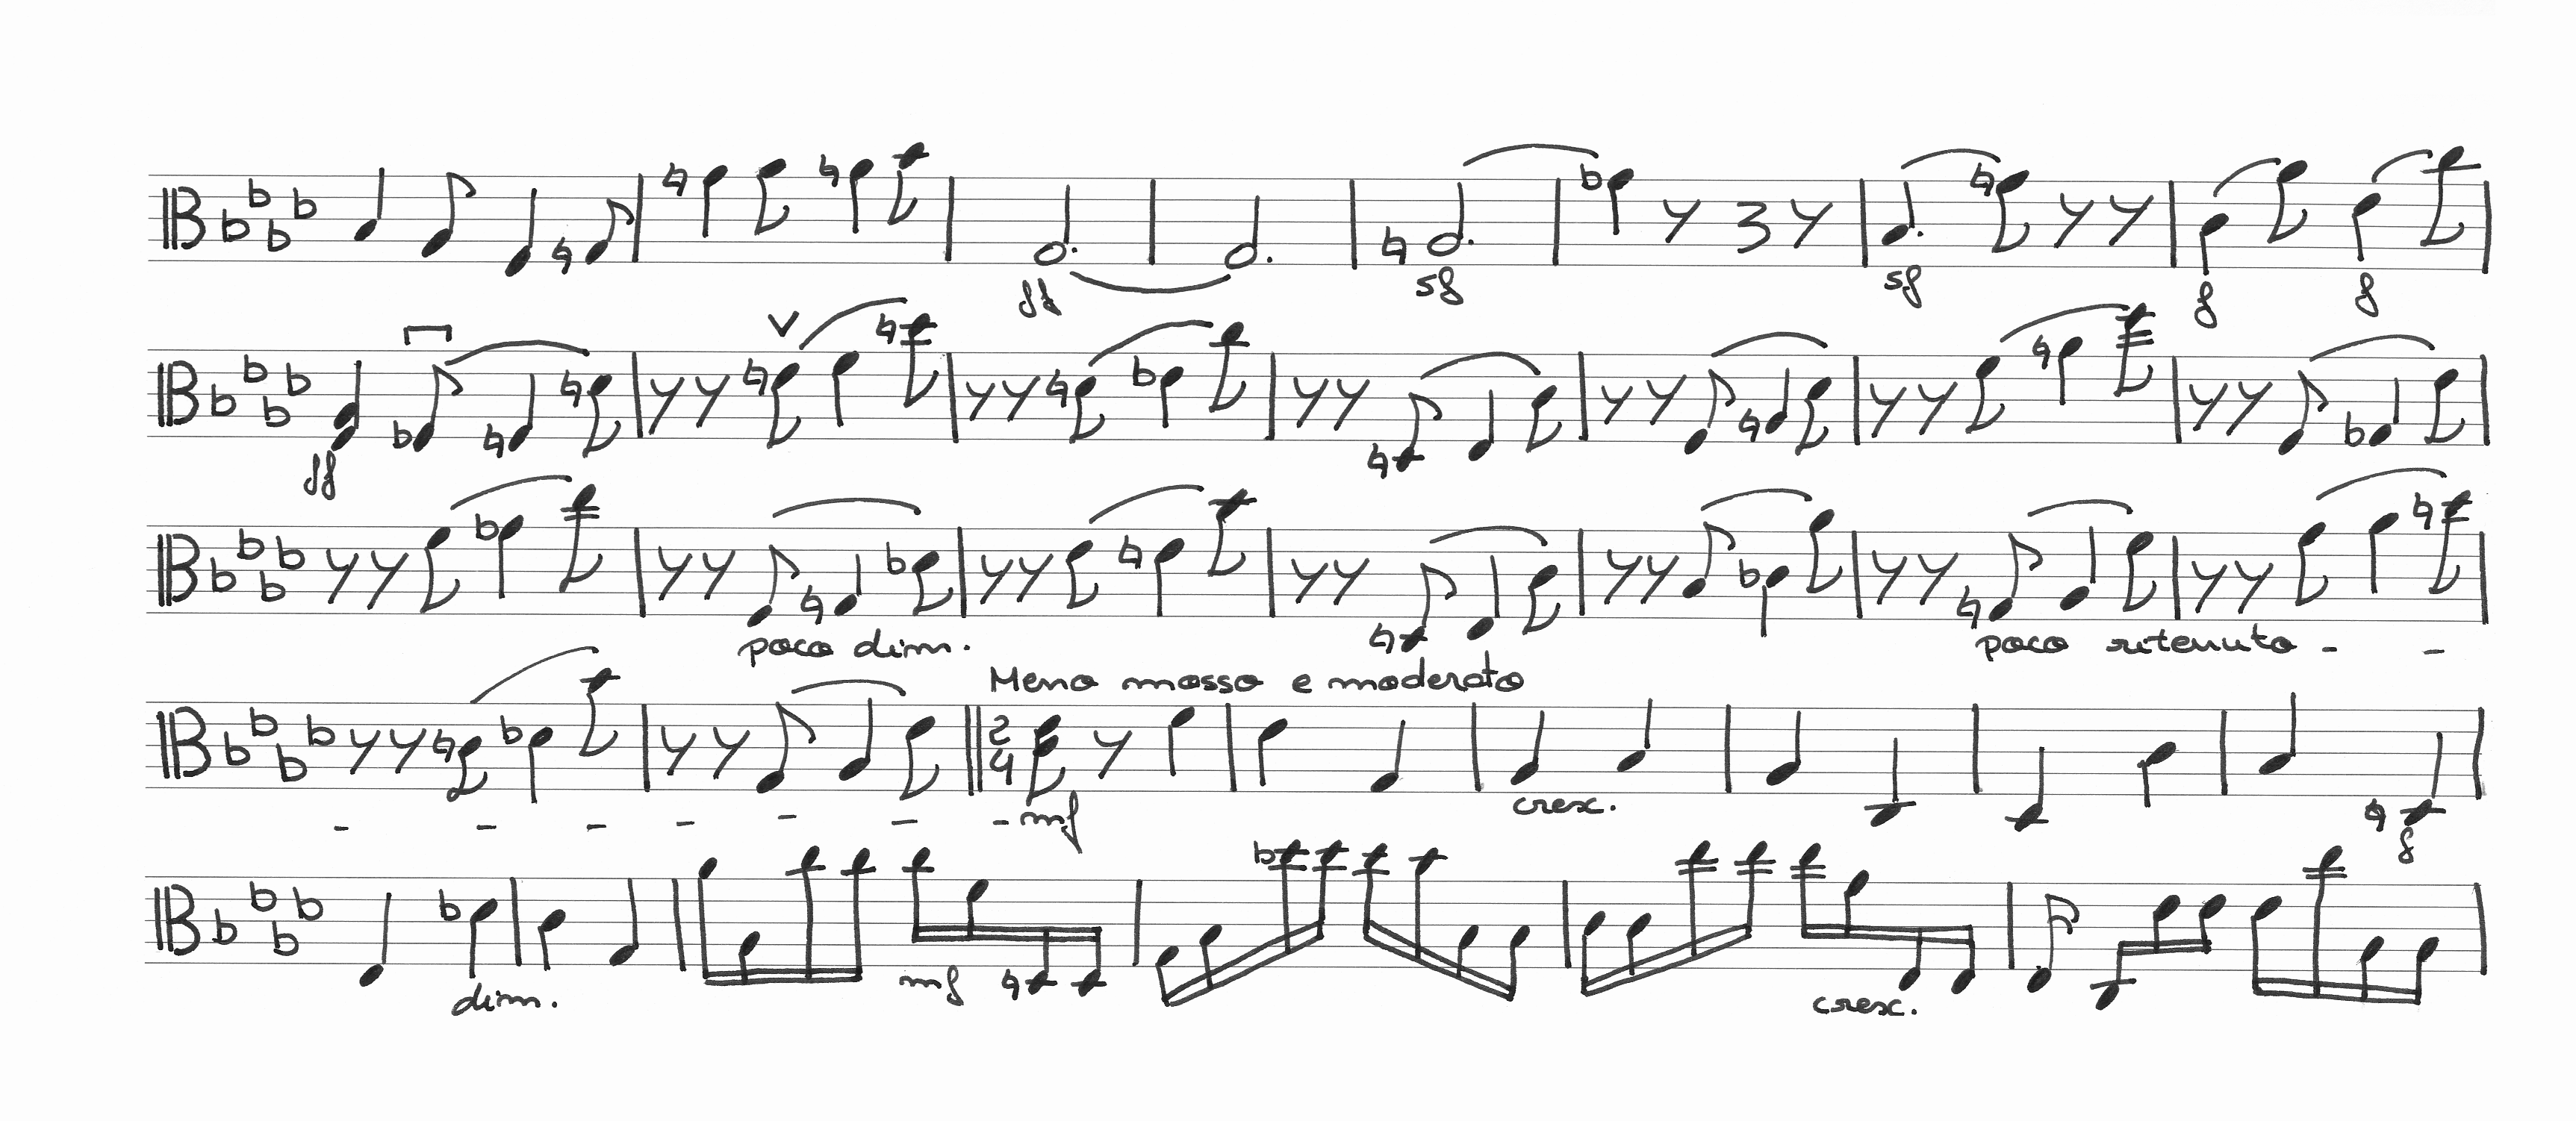 ff sf sf f f
ff
poco dim. poco ritenuto - -
Meno mosso e moderato
2 4
- - - - - - - mf cresc. f
dim. mf cresc.